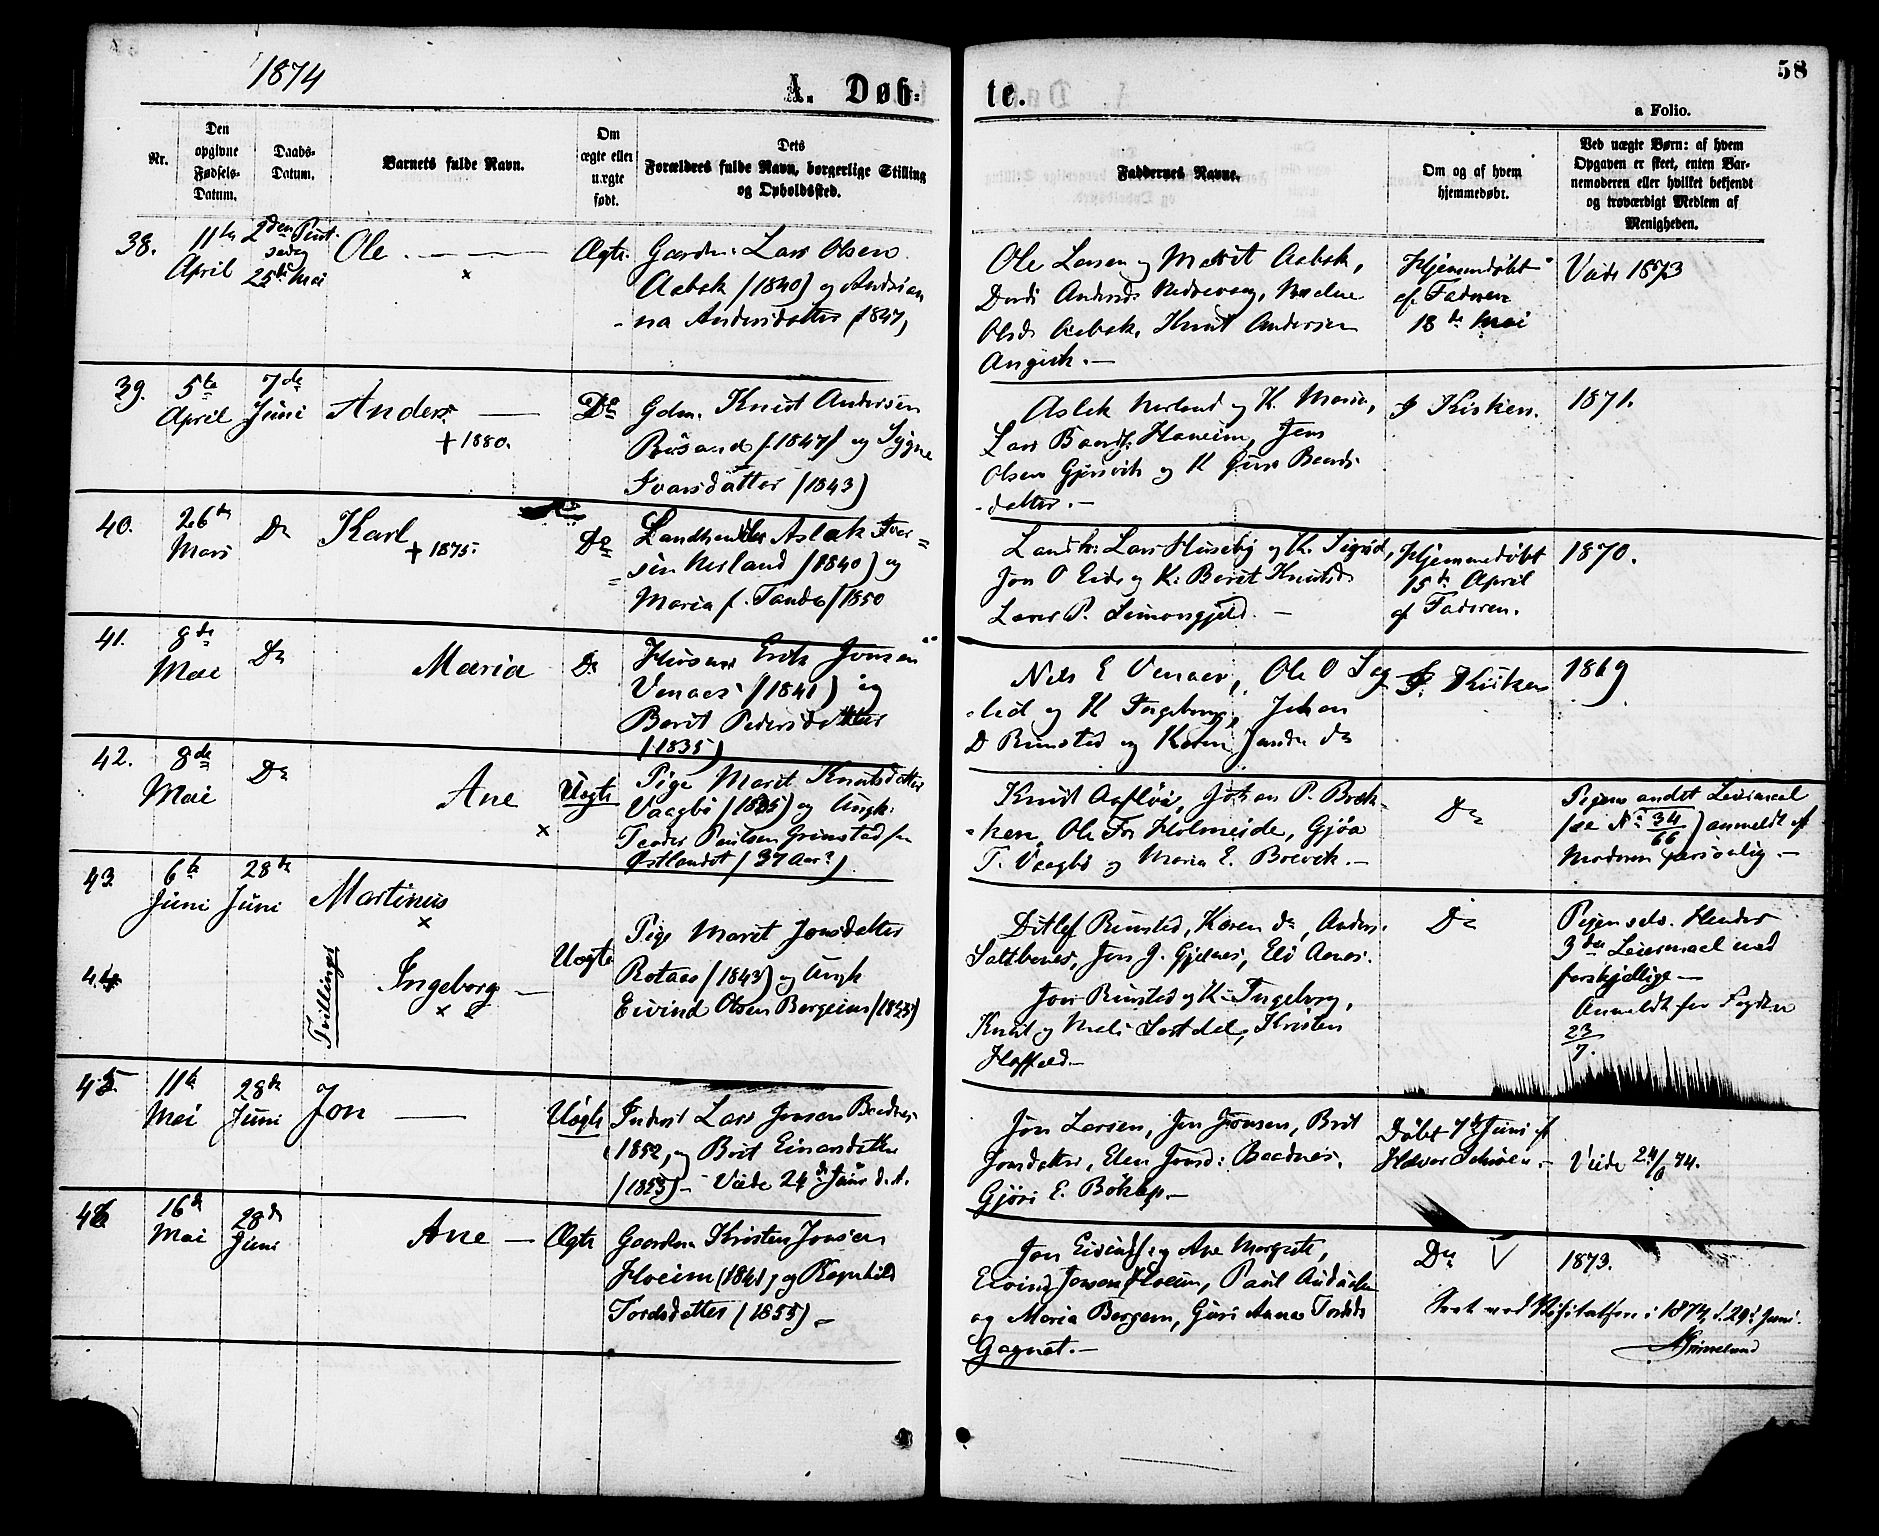 1874
A. Døb-
te.
58
a Folio.
Nr.
Den opgivne Fødsels-Datum.
Daabs-Datum.
Barnets fulde Navn.
Om ægte eller uægte født.
Dets Forældres fulde Navn, borgerlige Stilling og Opholdssted.
Faddernes Navne.
Om og af hvem hjemmedøbt.
Ved uægte Børn: af hvem Opgaven er skeet, enten Barnemoderen eller hvilket bekjendt og troværdigt Medlem af Menigheden.
38.
11te April
2den Pintsedag
25de Mai
Ole
×
Ægte
Gaardm: Lars Olsen
Aabak (1840) og Andrian
-na Andersdatter (1847)
Ole Larsen og Marit Aabak,
Anders
Olsd. Aabak, Knut Andersen
Angvik.
Hjemmedøbt
af Faderen
18de Mai
Viede 1873
39.
5te April
7de Juni
Anders
+ 1880.
Do
Gdm. Knut Andersen
Røsand (1847) og Sygne
Ivarsdatter (1843)
Aslak Nerland og K. Maria,
Lars Haneim, Jens
Olsen Gjørsvik og K. Guri Baards
-datter.
I Kirken.
1871.
40.
26de Mars
Do
Karl
+ 1875.
Do
Landhandler Aslak Iver=
=sen Nerland (1840) og
Maria f. (1850
Landh: Lars Huseby og K. Sigrid,
Jon O Eide og K: Beret Knutsd.
Lars P. Simonsgjeld.
Hjemmedøbt
15de April
af Faderen.
1870.
41.
8de Mai
Do
Maria
Do
Husm. Erik Jonsen
Venaes (1841) og
Berit Pedersdatter
(1835)
Nels E Venaes, Ole O
og K Ingeborg, Johan
D Rimsted og Karen do
I. Kirken
1869
42.
8de Mai
Do
Ane
×
Uægte
Pige Marit Knutsdatter
Vaagbø (1835) og Ungk.
Peder Paulsen Grimstad fra
Østlandet (37 Aar?)
Knut Aafløi, Johan P. Bræk-
-ken, Ole Holmeide, Gjøa
T. Vaagbø og Maria E. Brevik.
Do
Pigens andet Leiermaal
(se No 34/66) anmeldt af
Moderen personlig.
43.
6te Juni
28de Juni
Martinus
×
44
Tvillinger
Ingeborg
× ×
Uægte
Pige Marit Jonsdatter
Rotaas (1843) og Ungk
Eivind Olsen Bergeim (1845)
Ditlef Rimsted, Karen do, Anders
Saltbones, Jon J. Gjelnes, Eli Aanes.
Jon Rimsted og K. Ingeborg,
Knut og Kristen
Do
Pigen selv. Hendes
3die Leiermaal med
forskjellige
Anmeldt for Fogden
23/7.
45.
11te Mai
28de Juni
Jon
Uægte
Inderst Lars Jonsen Baadnes
1852, og Brit Einarsdatter
(1853) Viede 24de Juni d.A.
Jon Larsen, Jon Jonsen, Brit
Jonsdatter, Elen Jonsd: Baadnes,
Gjøri E. Bøkap.
Døbt 7de Juni af
Halvor
Viede 24/6 74.
46
16de Mai
28de Juni
Ane
Ægte
Gaardm. Kristen Jonsen
Hoeim (1841) og Ragnhild
Tordsdatter (1855)
Jon og Ane Margrete,
Eivind Jonsen Hoeim, Paul
og Maria Bergem, Guri Anna Tordsd.
Gagnat.
Do
1873.
Seet ved Visitatsen i 1874 d. 29de Juni.
Grimelund